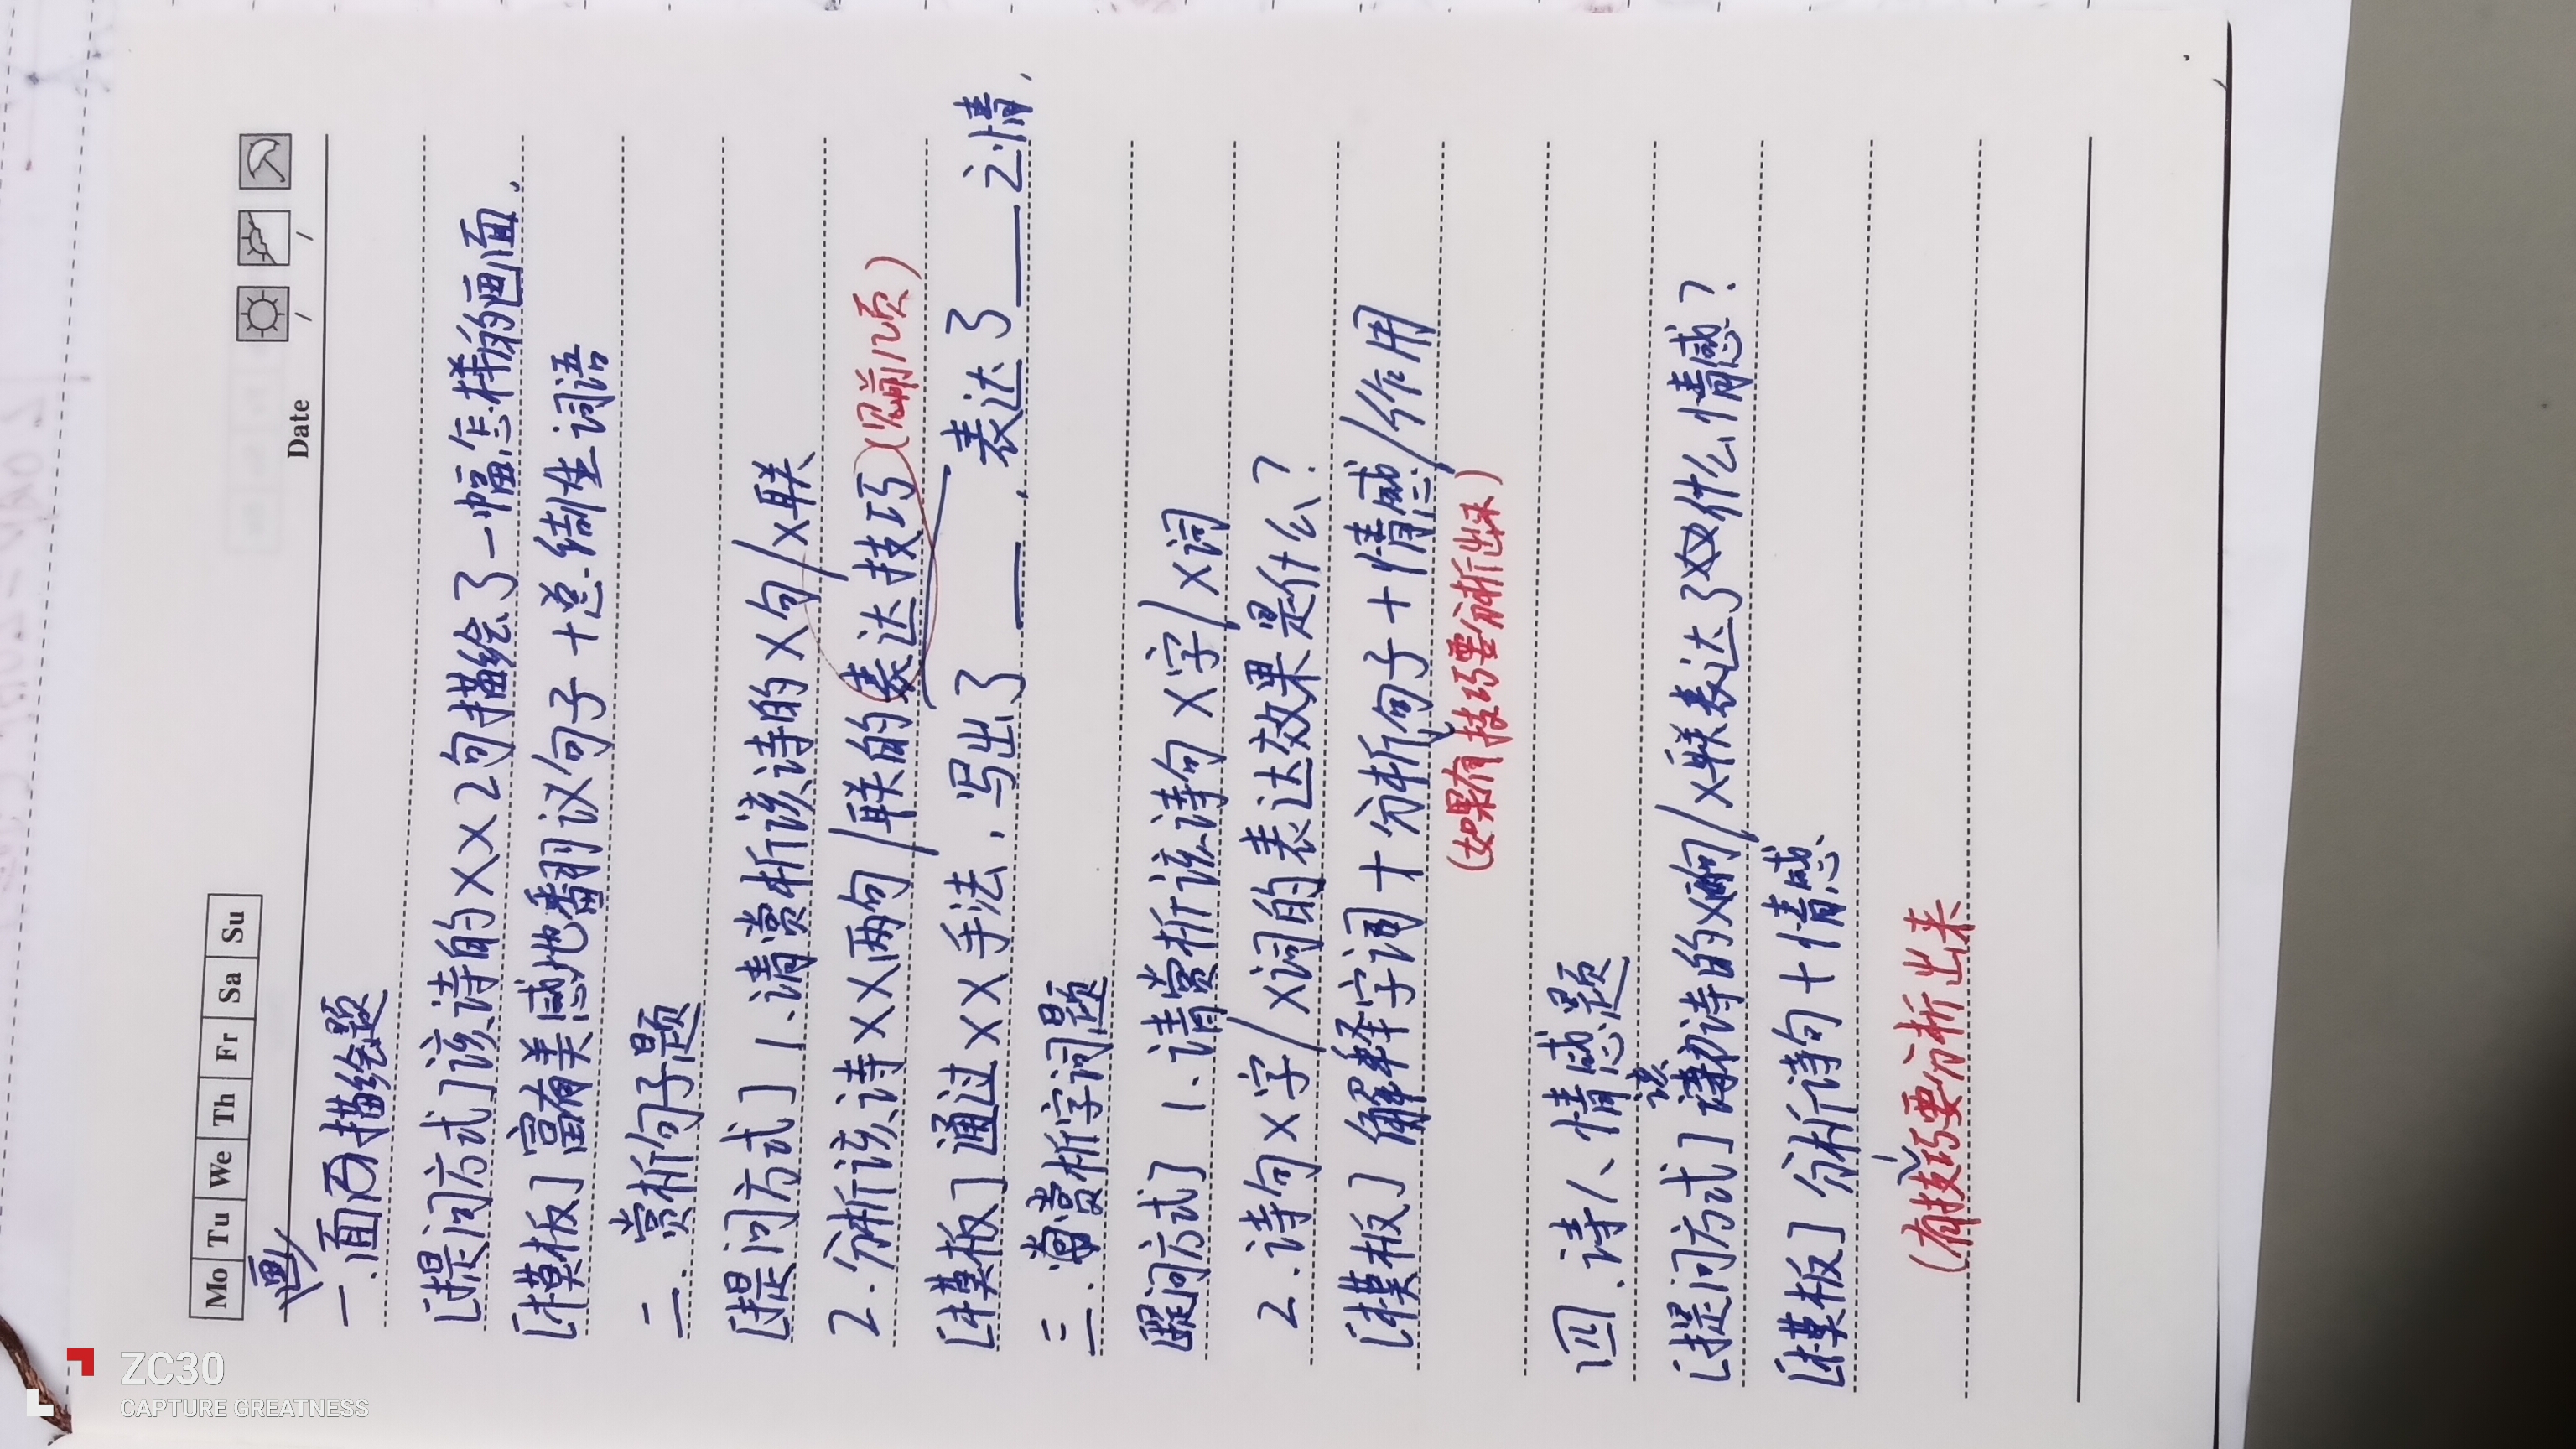 Mo Tu We Th Fr Sa Su
Date / /
画
一.面面描绘题
[提问方式]该诗的XX2句描绘了一幅怎样的画面.
[模板]富有美感地翻议句子+总结性词语
二.赏析句子题
[提问方式]1、请赏析该诗的X句/X联
2.分析该诗XX两句/联的表达技巧(见前几页)
[模板]通过XX手法,写出了___,表达了___之情,
三.赏析字词题
[提问方式]1、请赏析该诗句X字/X词
2.诗句X字/X词的表达效果是什么?
[模板]解释字词+分析句子+情感/作用
(如果有技巧要分析出来)
四.诗人情感题
该
[提问方式]诗的X句/X联表达了什么情感?
[模板]分析诗句+情感
(有技巧要分析出来
ZC30
CAPTURE GREATNESS